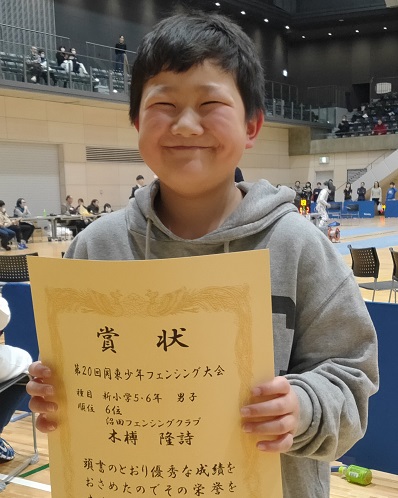 賞状
第20回関東少年フェンシング大会
種目 新小学5・6年 男子
順位 6位
沼田フェンシングクラブ
木榑 隆詩
頭書のとおり優秀な成績を
おさめたのでその栄誉を